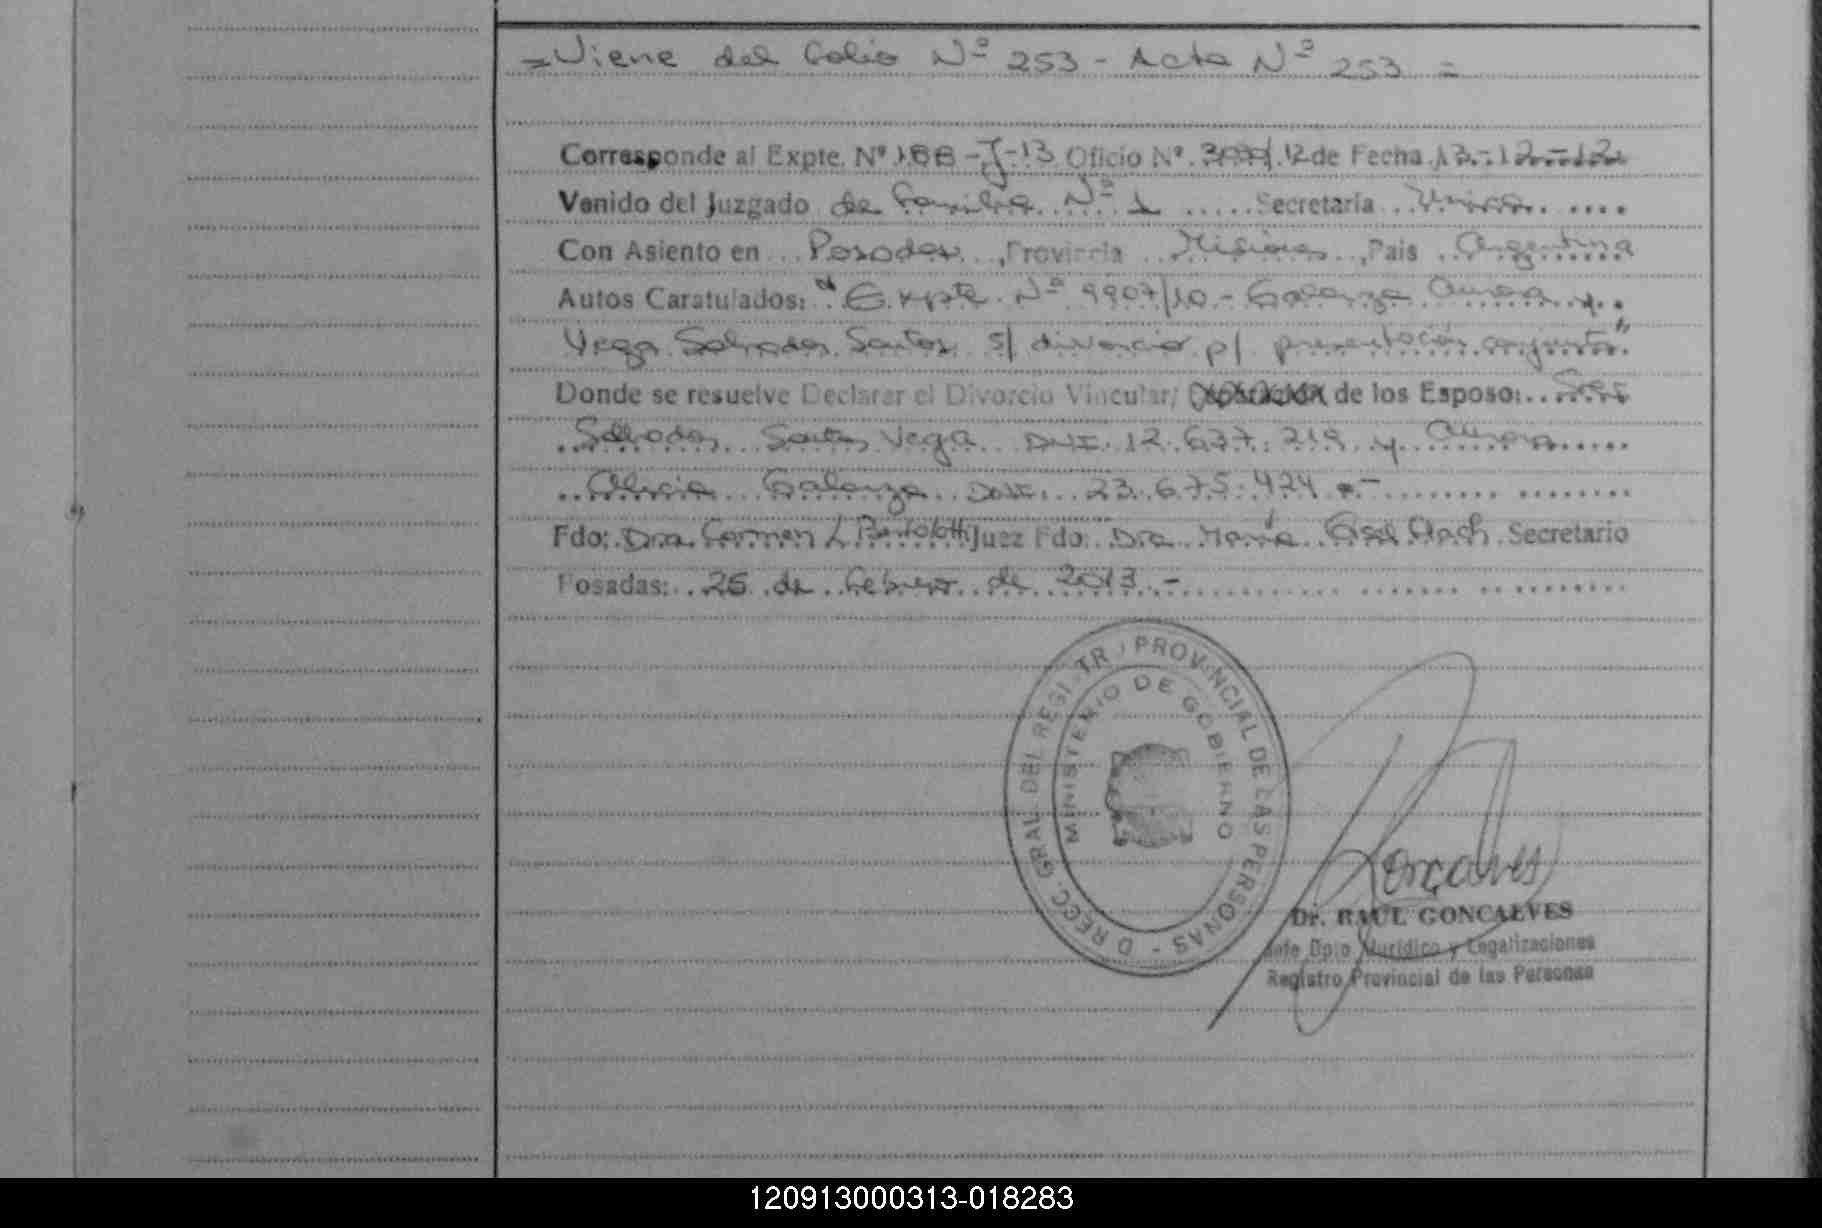 = Viene del folio Nº 253 - Acta Nº 253 =
Corresponde al Expte. Nº 188 - J - 13 Oficio Nº /12 de Fecha 13-12-12
Venido del Juzgado de Familia Nº 1 Secretaria Unica
Con Asiento en Posadas, Provincia Misiones, Pais Argentina
Autos Caratulados: "Expte. Nº 9907/10 - Galarza Aurora y
Vega Salvador Santos s/ divorcio p/ presentación conjunta"
Donde se resuelve Declarar el Divorcio Vincular/ de los Esposo: Sres
Salvador Santos Vega DNI. 12.677.219 y Aurora
Alicia Galarza DNI. 23.675.424 -
Fdo: Dra. Carmen L Bertolotti Juez Fdo. Dra. María Gisel Secretario
Posadas: 25 de febrero de 2013 -
DIRECC. GRAL. DEL REGISTR PROVINCIAL DE LAS PERSONAS -
MINISTERIO DE GOBIERNO
Goncalves
Dr. RAUL GONCALVES
Jefe Dpto. Jurídico y Legalizaciones
Registro Provincial de las Personas
120913000313-018283